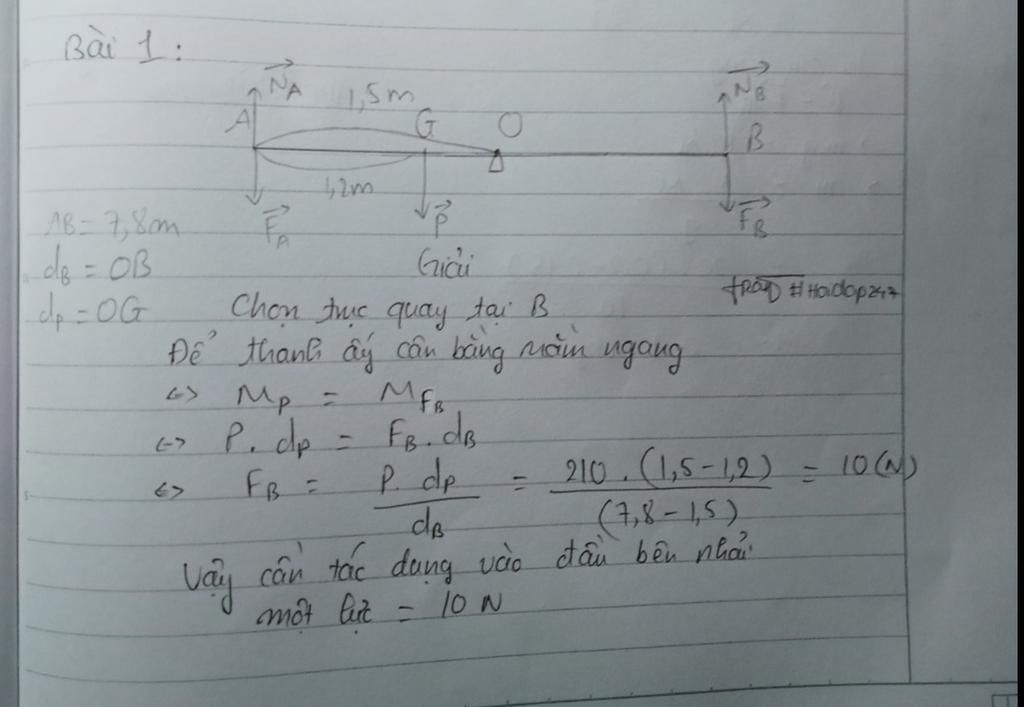 Bài 1:
N_A
1,5m
N_B
A
G
O
B
1,2m
F_A
P
F_B
AB = 7,8m
d_B = OB
Giải
d_P = OG
Chọn trục quay tại B
#Hoidap247
Để thanh ấy cân bằng nằm ngang
<=> M_P = M_{F_B}
<=> P. d_P = F_B. d_B
<=> F_B = \frac{P. d_P}{d_B} = \frac{210. (1,5-1,2)}{(7,8-1,5)} = 10(N)
Vậy cần tác dụng vào đầu bên phải
một lực = 10 N